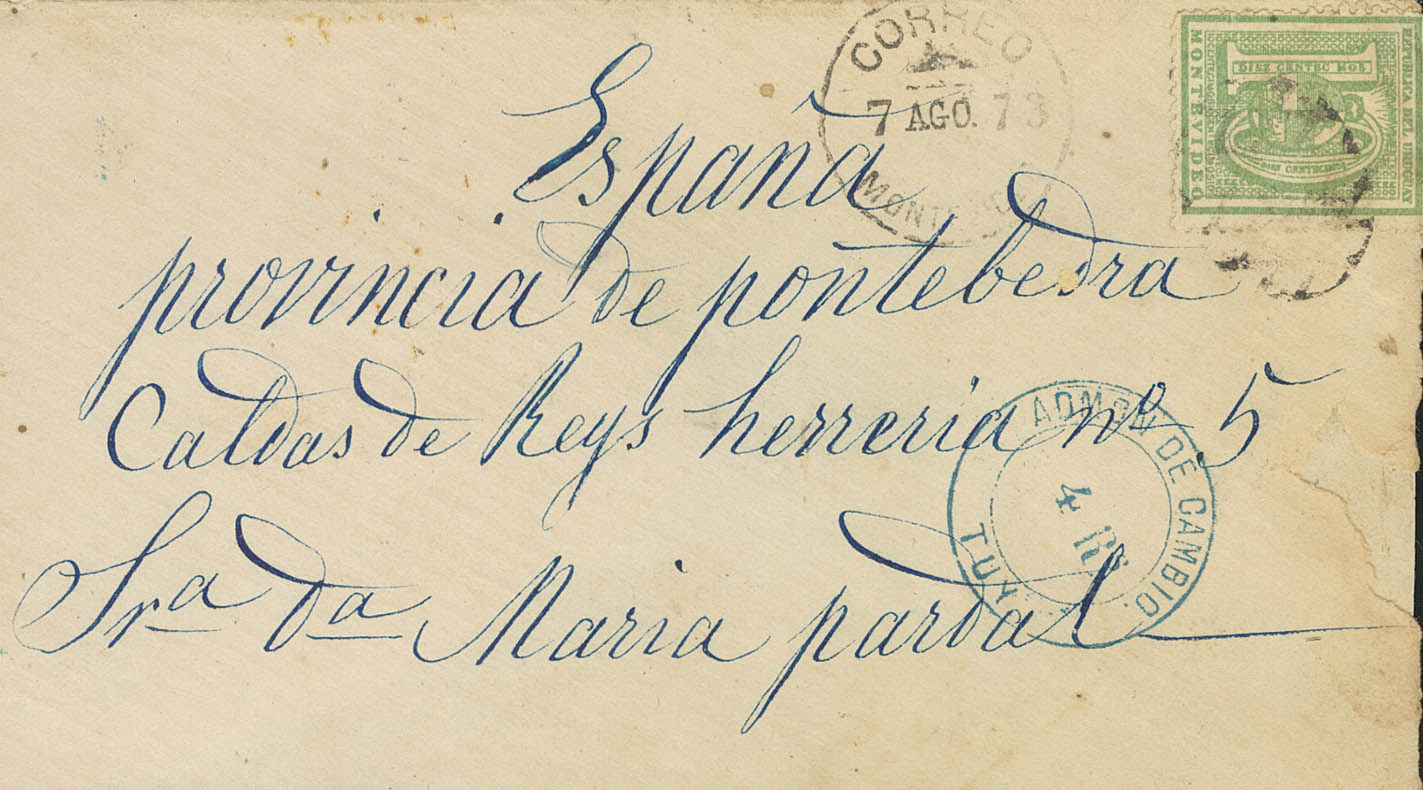 CORREO
7 AGO. 73
REPUBLICA DEL URUGUAY
DIEZ CENTECIMOS
MONTEVIDEO
España
provincia de pontebedra
Caldas de Reys herreria nº 5
Sra Da Maria pardal
ADMON DE CAMBIO.
4 Rs
TUY